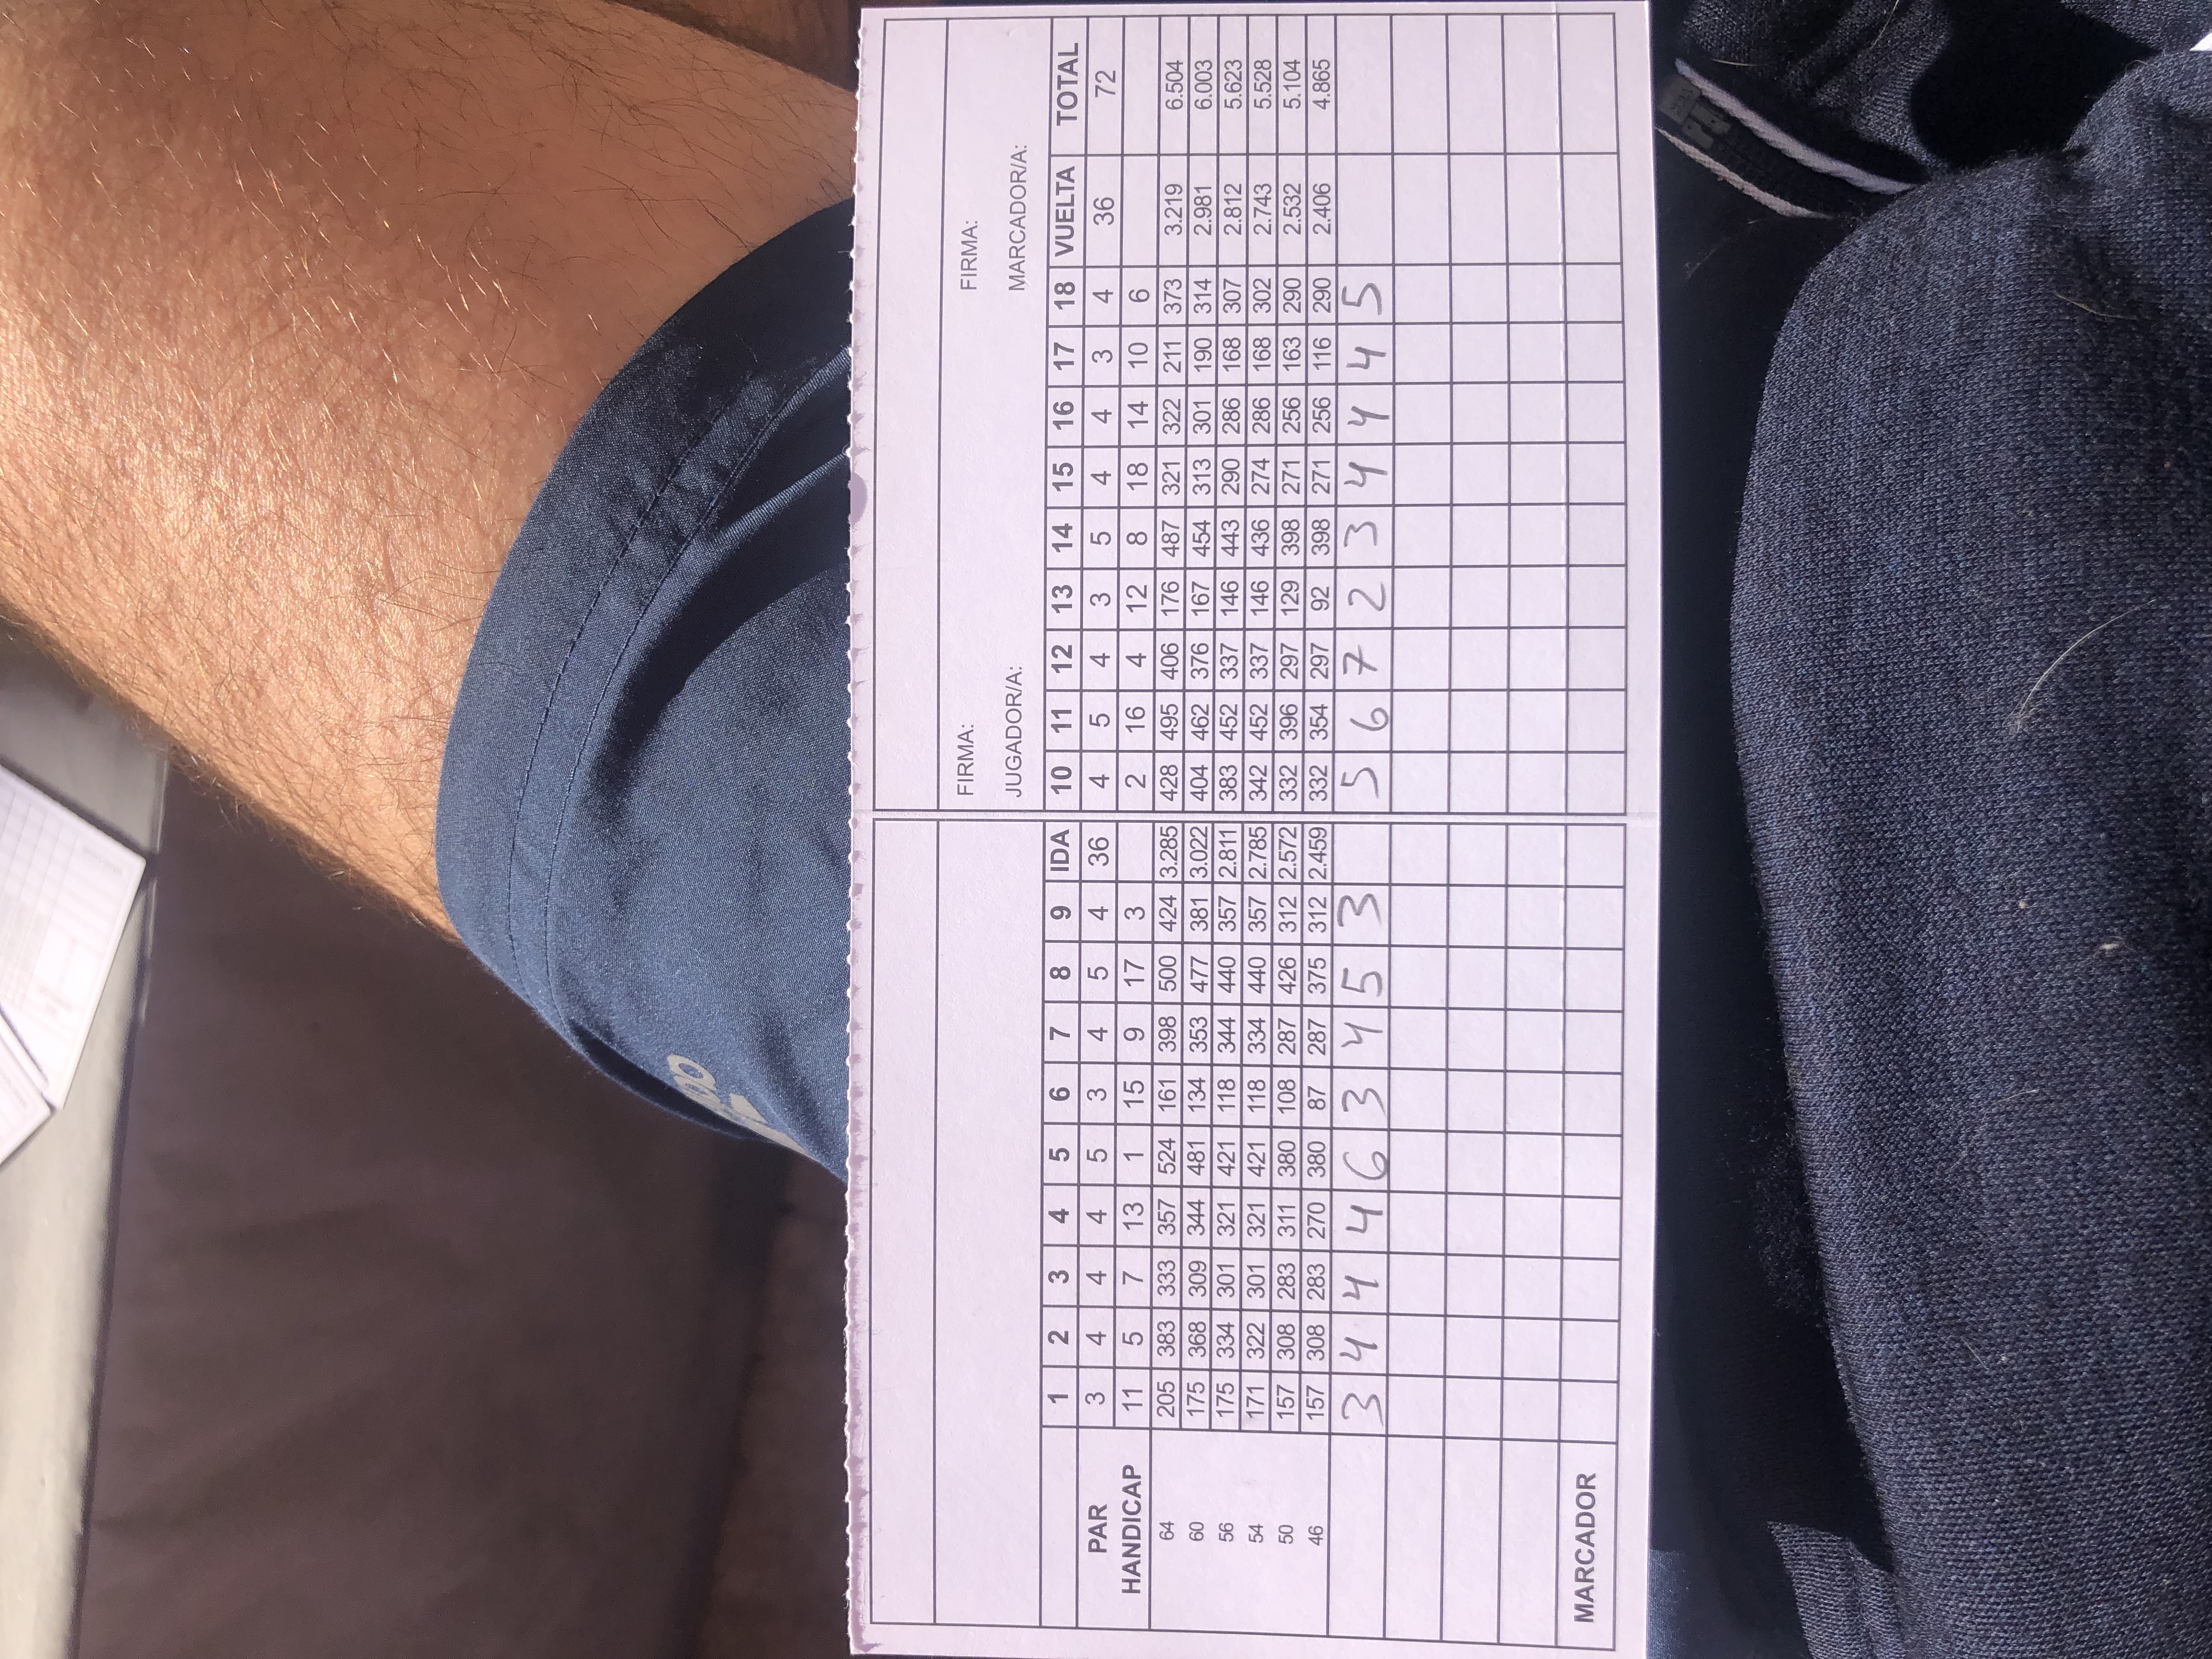 FIRMA: FIRMA:
JUGADOR/A: MARCADOR/A:
1 2 3 4 5 6 7 8 9 IDA 10 11 12 13 14 15 16 17 18 VUELTA TOTAL
PAR 3 4 4 4 5 3 4 5 4 36 4 5 4 3 5 4 4 3 4 36 72
HANDICAP 11 5 7 13 1 15 9 17 3 2 16 4 12 8 18 14 10 6
64 205 383 333 357 524 161 398 500 424 3.285 428 495 406 176 487 321 322 211 373 3.219 6.504
60 175 368 309 344 481 134 353 477 381 3.022 404 462 376 167 454 313 301 190 314 2.981 6.003
56 175 334 301 321 421 118 344 440 357 2.811 383 452 337 146 443 290 286 168 307 2.812 5.623
54 171 322 301 321 421 118 334 440 357 2.785 342 452 337 146 436 274 286 168 302 2.743 5.528
50 157 308 283 311 380 108 287 426 312 2.572 332 396 297 129 398 271 256 163 290 2.532 5.104
46 157 308 283 270 380 87 287 375 312 2.459 332 354 297 92 398 271 256 116 290 2.406 4.865
3 4 4 4 6 3 4 5 3 5 6 7 2 3 4 4 4 5
MARCADOR